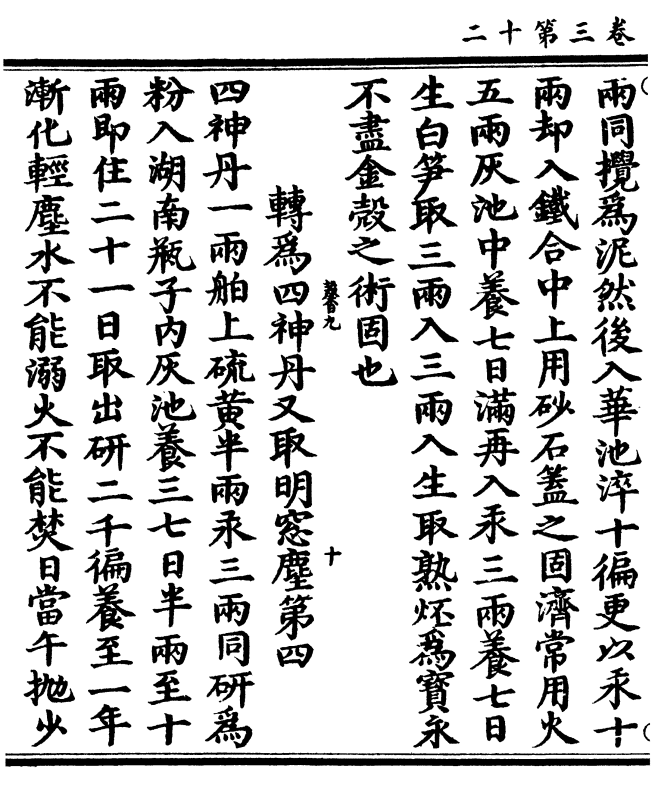 卷三第十二
兩同攪為泥然後入華池淬十徧更以汞十
兩却入鐵合中上用砂石蓋之固濟常用火
五兩灰池中養七日滿再入汞三兩養七日
生白笋取三兩入三兩入生取熟烀為寶永
不盡金殼之術固也
龔會九
轉為四神丹又取明窓塵第四
十
四神丹一兩舶上硫黄半兩汞三兩同研為
粉入湖南瓶子內灰池養三七日半兩至十
兩即住二十一日取出研二千徧養至一年
漸化輕塵水不能溺火不能焚日當午拋少